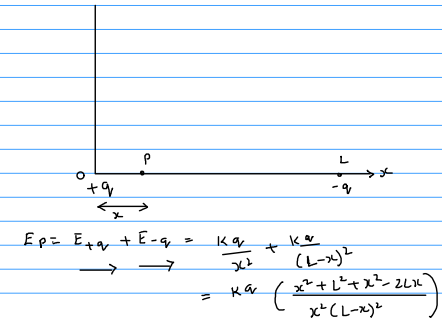 P L
O x
+q -q
x
Ep = E+q + E-q = kq/x² + kq/(L-x)²
= kq ( x² + L² + x² - 2Lx / x²(L-x)² )